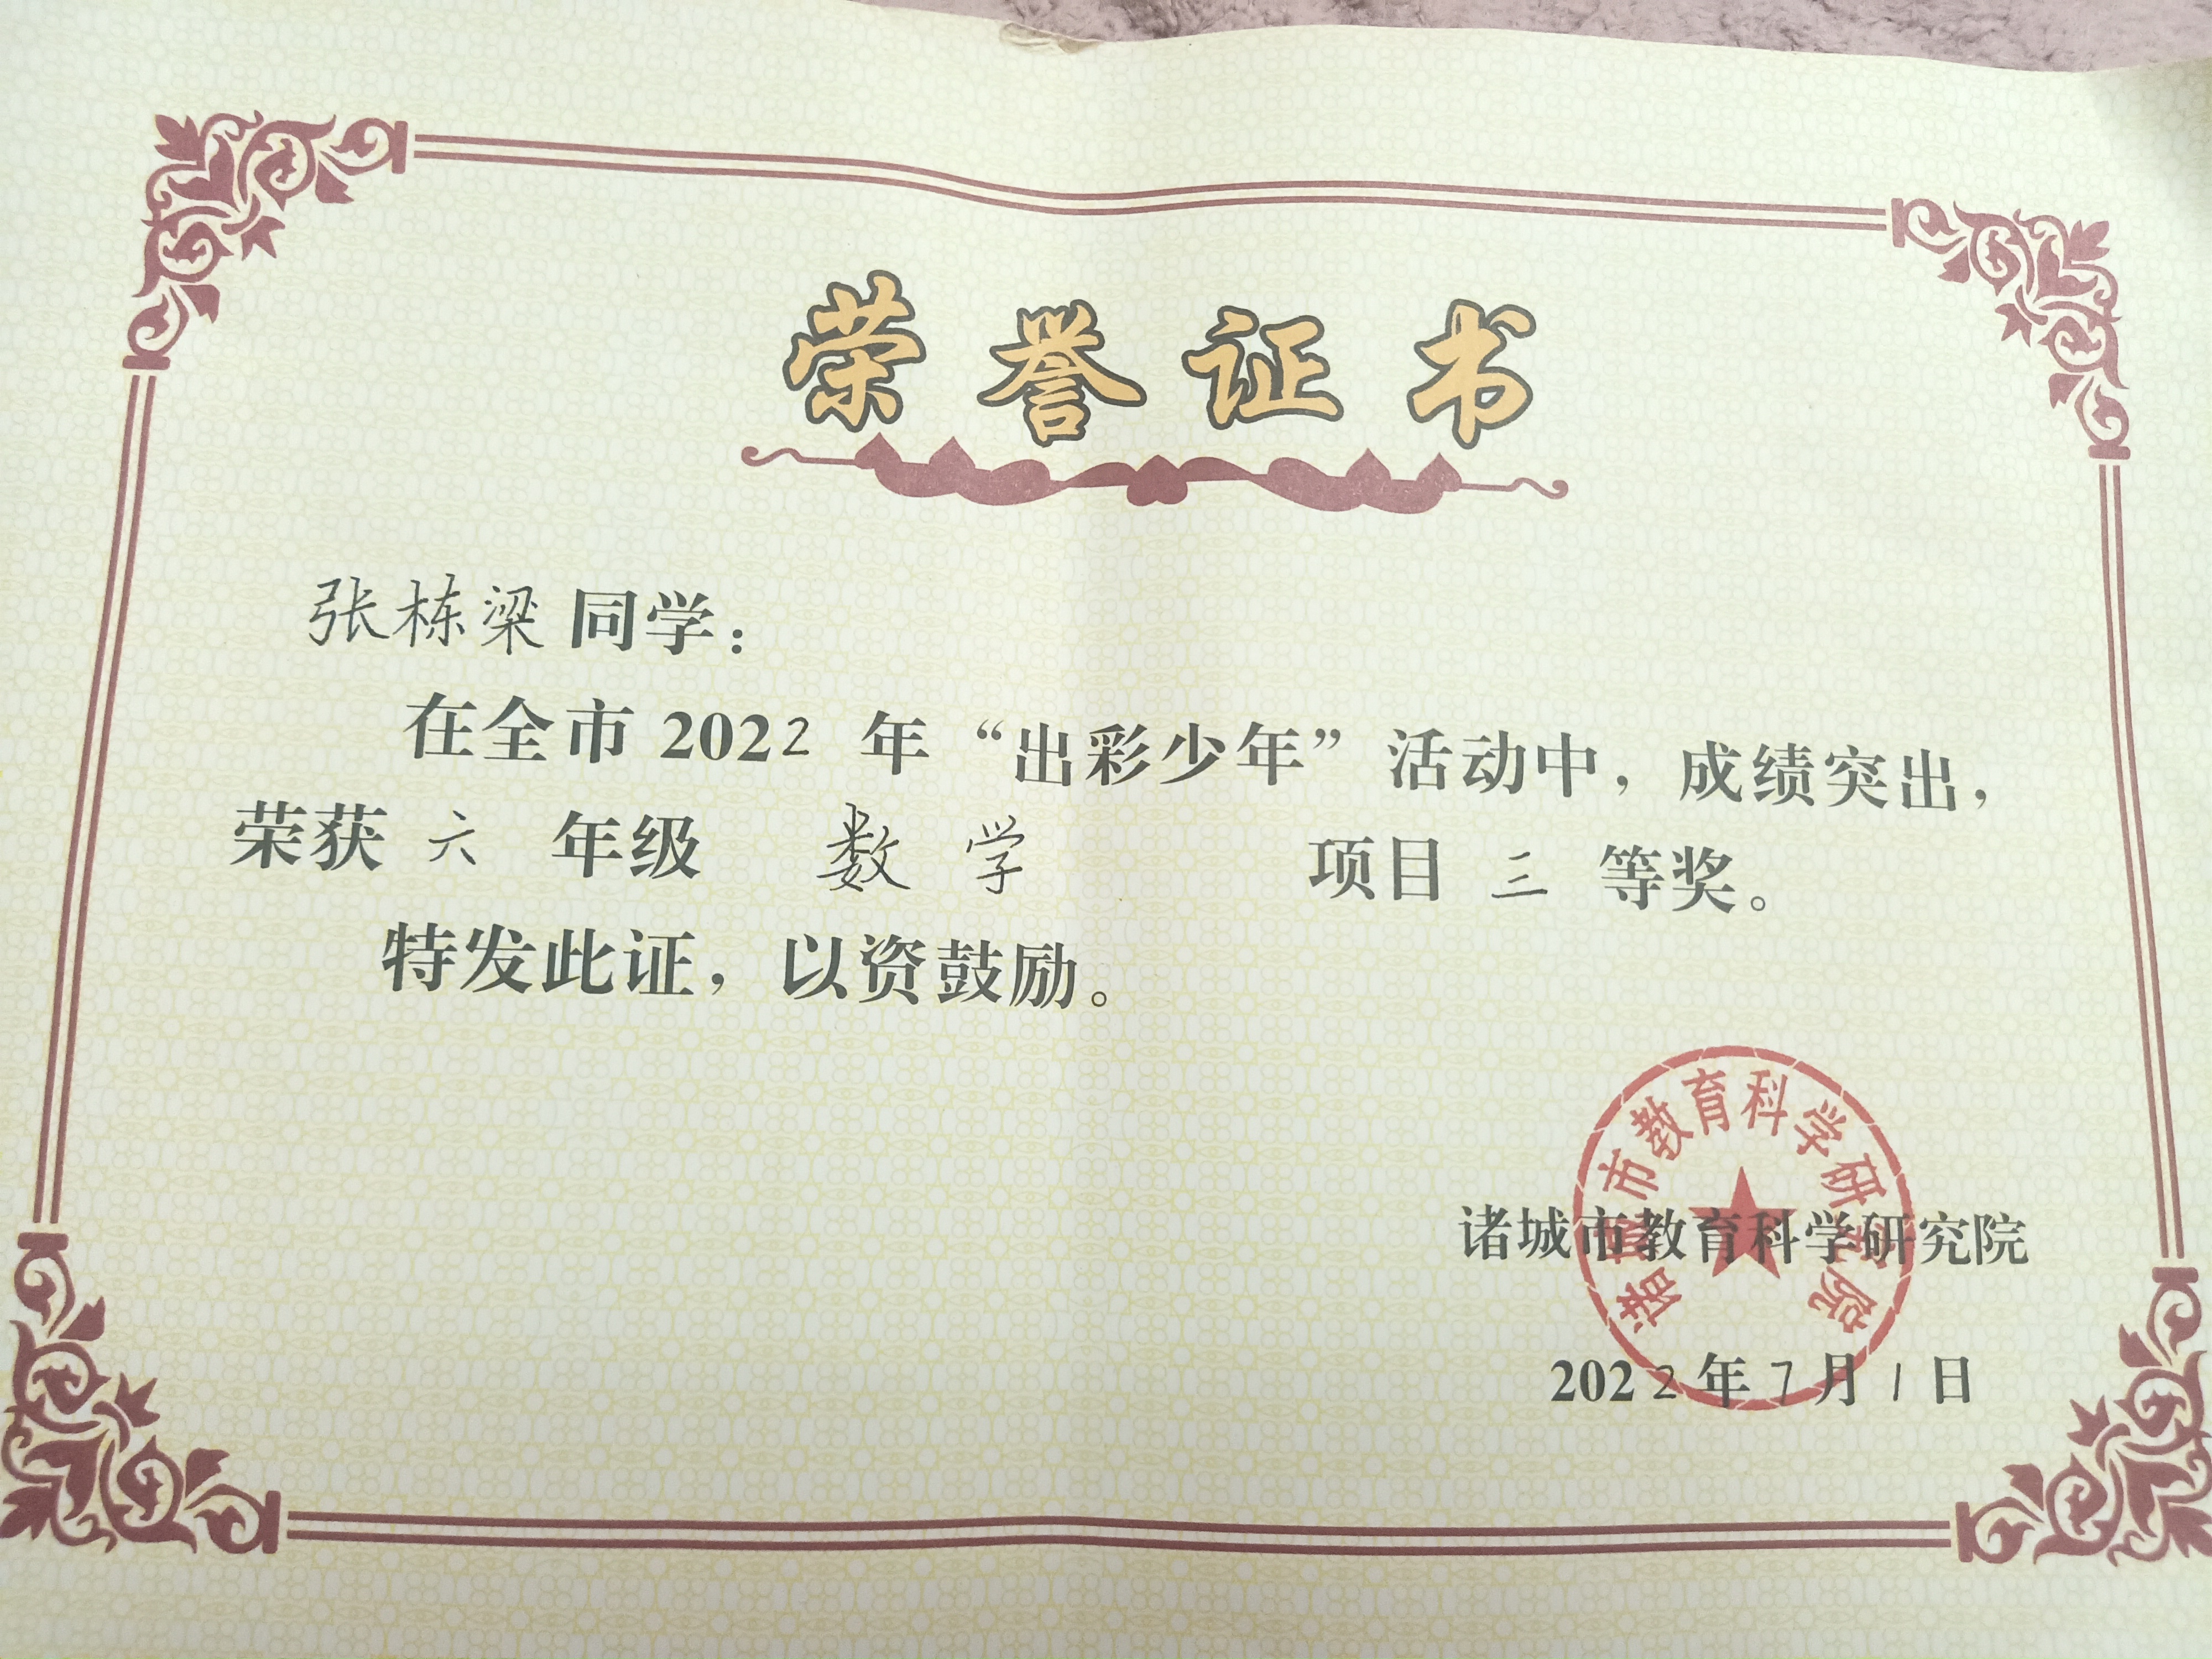 荣誉证书
张栋梁同学：
在全市 2022 年“出彩少年”活动中，成绩突出，
荣获 六 年级 数学 项目 三 等奖。
特发此证，以资鼓励。
诸城市教育科学研究院
诸城市教育科学研究院
2022年7月1日